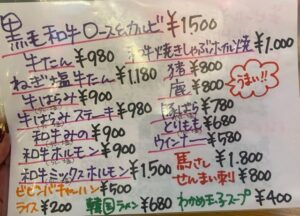 黒毛和牛ロース&カルビ ¥1500
牛たん ¥980
ねぎ塩牛たん ¥1,180
牛はらみ ¥900
牛はらみステーキ ¥980
和牛みの ¥900
和牛ホルモン ¥900
和牛ミックスホルモン ¥1,500
ビビンバチャーハン ¥500
ライス ¥200
韓国ラーメン ¥680
焼きしゃぶ ¥1.000
猪 ¥800
鹿 ¥800
うまい!!
豚ばら ¥780
とりもも ¥680
ウインナー ¥580
馬さし ¥1.800
せんまい刺 ¥800
わかめ玉子スープ ¥400